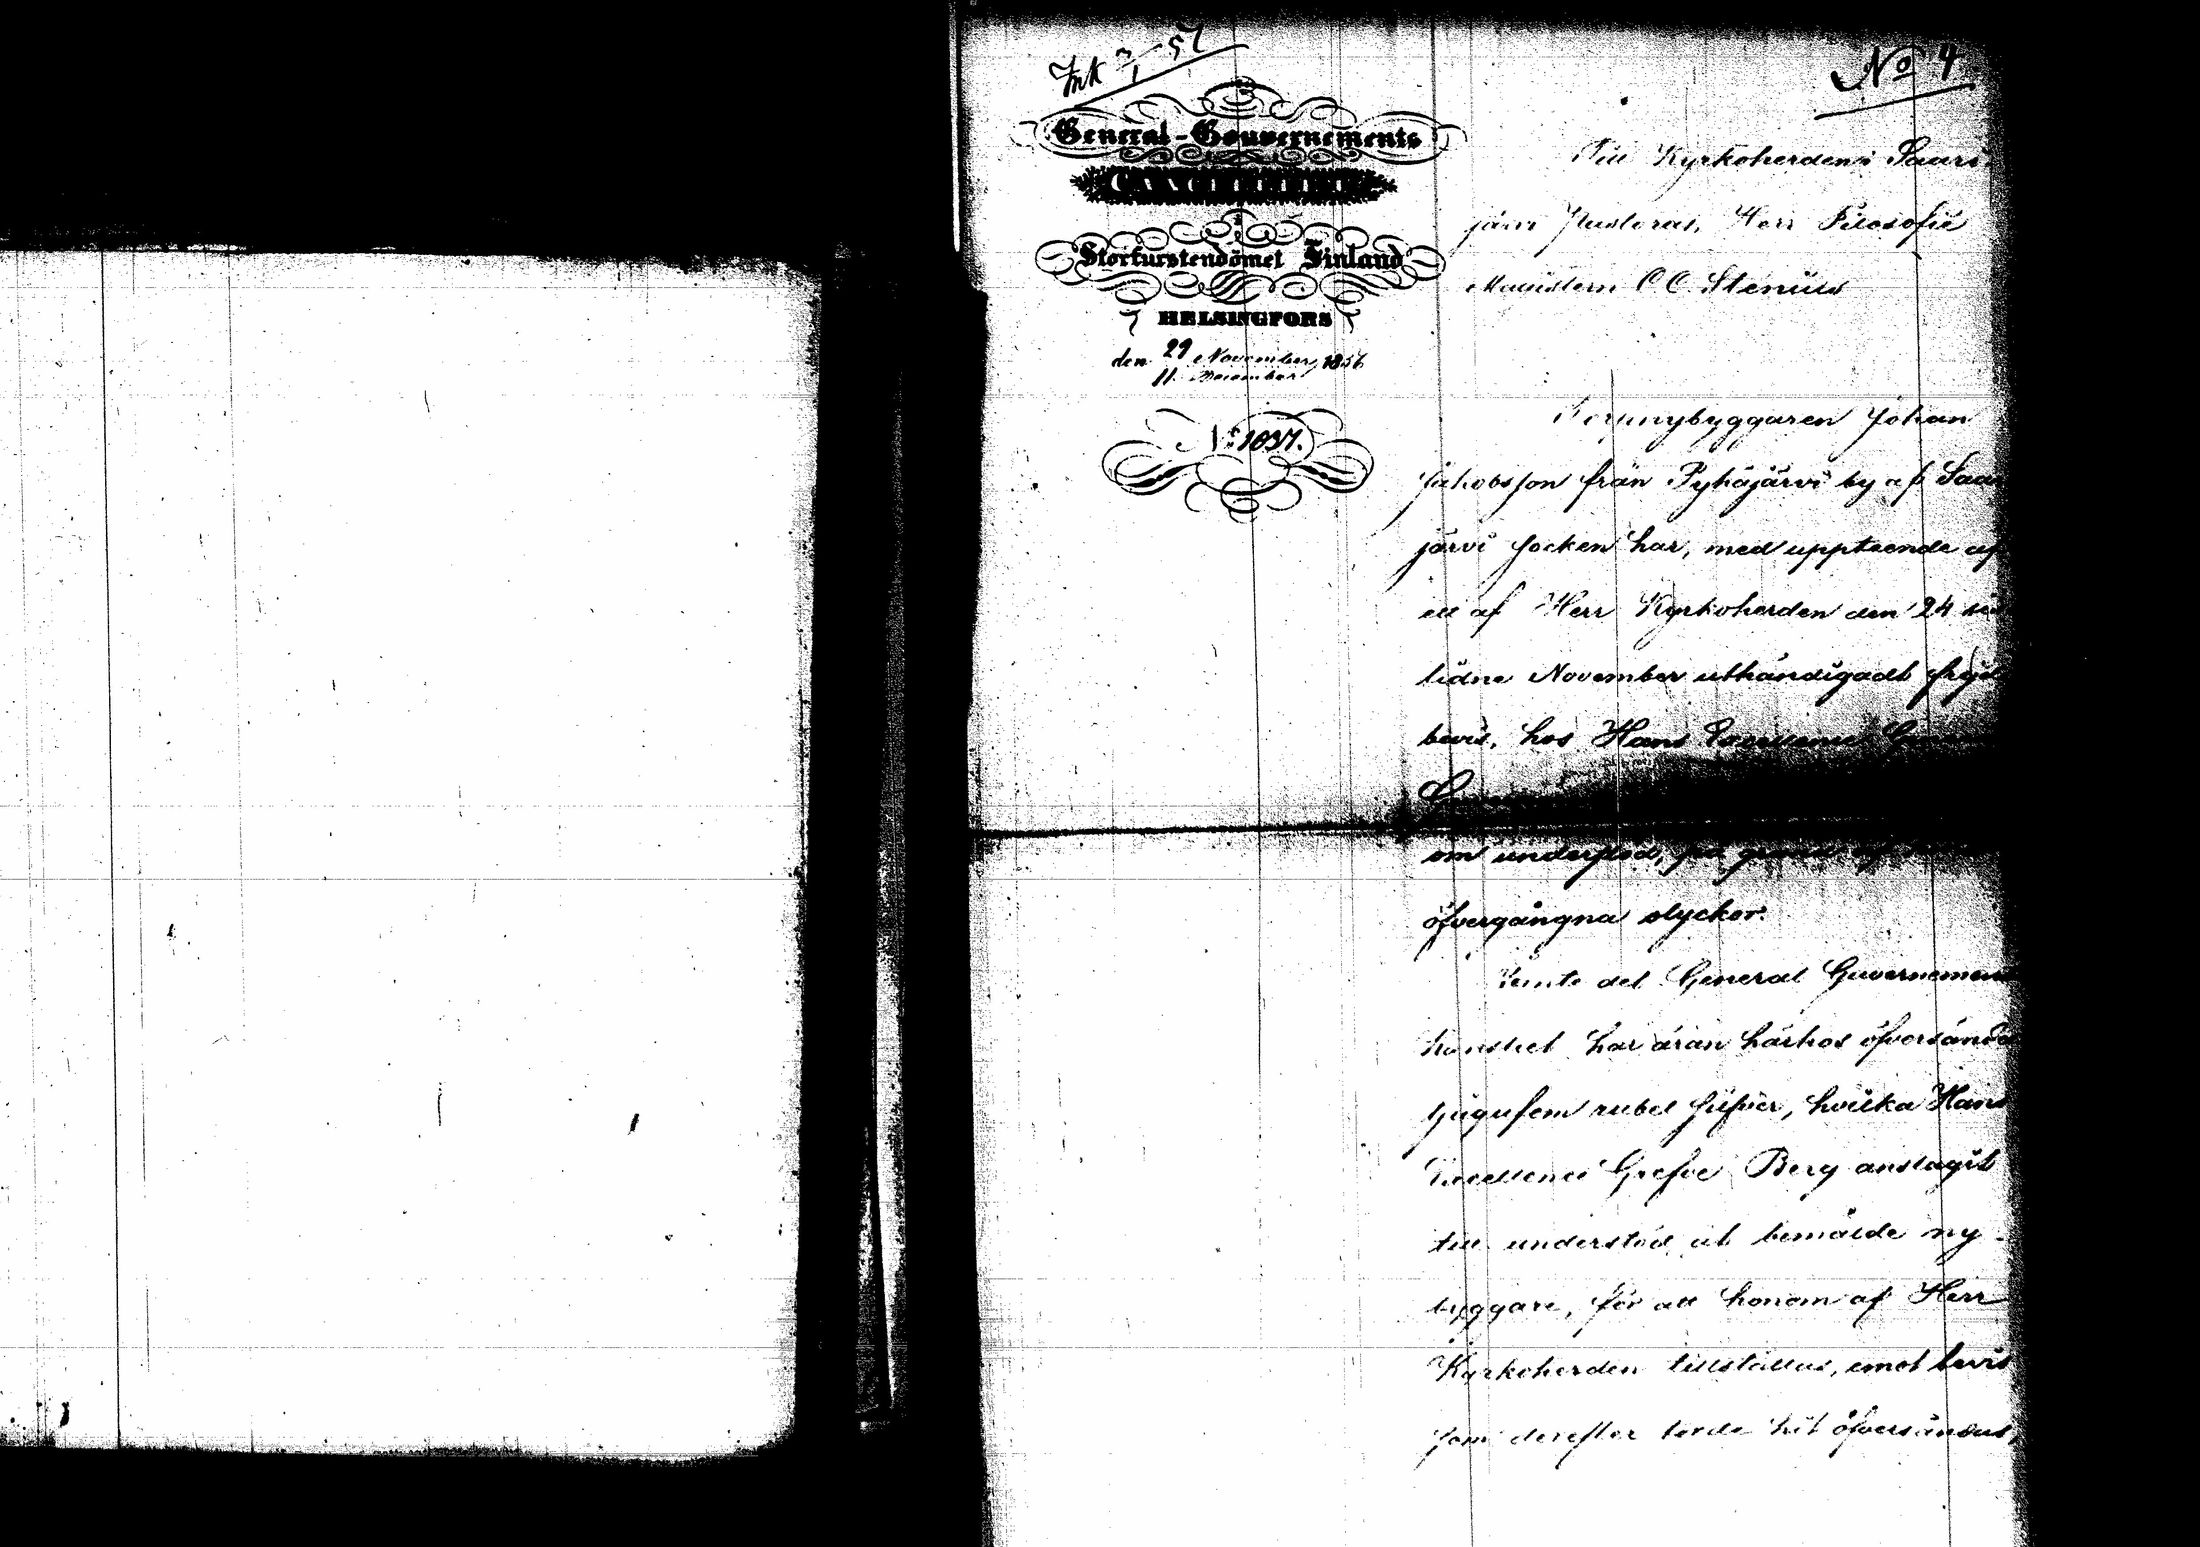 Ink 3/1 57
No 4
General-Gouvernements
CANCELLIET
i
Storfurstendömet Finland
HELSINGFORS
den 29 November 1856
11 December
No 1037.
Till Kyrkoherden i Saari
järvi Pastorat, Herr Filosofie
Magistern C C Stenius
Torpnybyggaren Johan
Jakobsson från Pyhäjärvi by af Saari
järvi socken har, med uppteende af
ett af Herr Kyrkoherden den 24 sist
lidne November uthändigadt frejd
bevis, hos Hans Excellence
om understöd, på grund af
öfvergångna olyckor.
Jemte det General Guvernements
Kansliet har äran härhos öfversända
tjugufem rubel silfver, hvilka Hans
Excellence Grefve Berg anslagit
till understöd åt bemälde ny-
byggare, för att honom af Herr
Kyrkoherden tillställas, emot bevis
som derefter torde hit öfversändas,